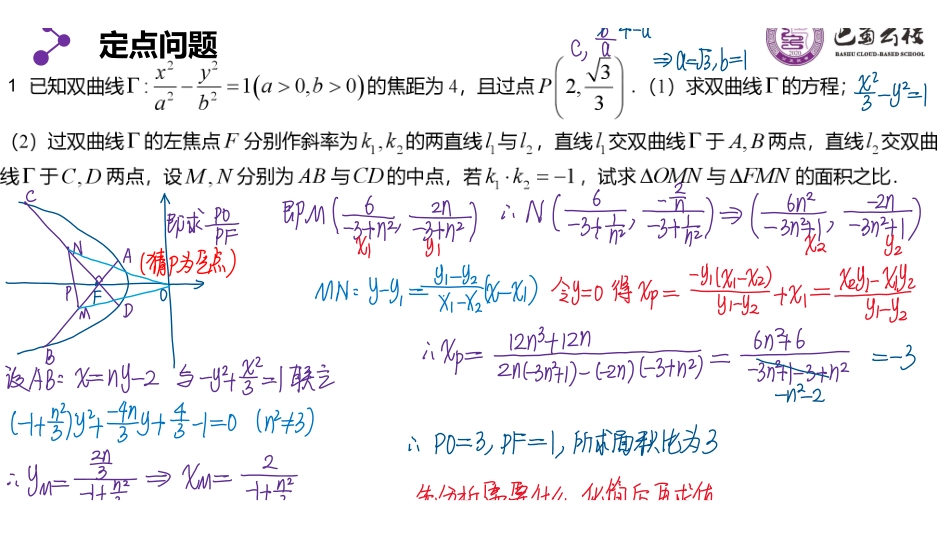 定点问题
C, b/a
⇒a=√3, b=1
巴蜀云校
BASHU CLOUD-BASED SCHOOL
1 已知双曲线Γ: x²/a² − y²/b² = 1(a > 0, b > 0)的焦距为 4，且过点 P(2, √3/3). (1) 求双曲线Γ的方程;
x²/3 − y² = 1
(2) 过双曲线Γ的左焦点 F 分别作斜率为 k₁, k₂的两直线 l₁与 l₂，直线 l₁交双曲线Γ于 A, B 两点，直线 l₂交双曲
线Γ于 C, D 两点，设 M, N 分别为 AB 与 CD 的中点，若 k₁·k₂ = −1，试求 ΔOMN 与 ΔFMN 的面积之比.
C
N
A
P
F
O
M
D
B
即求 PO/PF
(猜P为定点)
即M(6/(-3+n²), 2n/(-3+n²)) ∴N(6/(-3+1/n²), -2/n/(-3+1/n²)) ⇒ (6n²/(-3n²+1), -2n/(-3n²+1))
x₁ y₁ x₂ y₂
MN: y-y₁ = (y₁-y₂)/(x₁-x₂) (x-x₁) 令y=0 得 xp = -y₁(x₁-x₂)/(y₁-y₂) + x₁ = (x₂y₁-x₁y₂)/(y₁-y₂)
∴ xp = (12n³+12n)/(2n(-3n²+1)-(-2n)(-3+n²)) = (6n²+6)/(-3n²+1-3+n²) = -3
-n²-2
设AB: x=ny-2 与 -y²+x²/3=1 联立
(-1+n²/3)y²+(-4n/3)y+4/3-1=0 (n²≠3)
∴ y_M = (2n/3)/(-1+n²/3) ⇒ x_M = 2/(-1+n²/3)
∴ PO=3, PF=1, 所求面积比为3